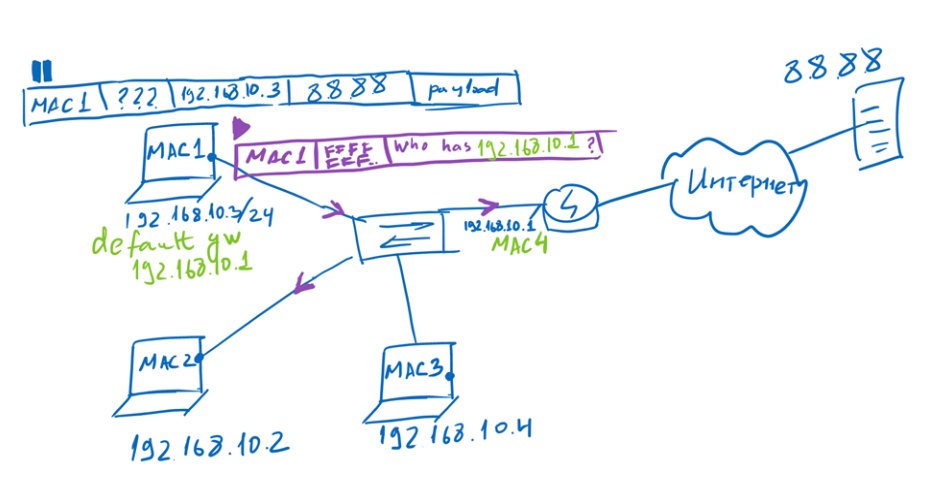 8888
MAC1 ??? 192.168.10.3 8888 payload
MAC1 FFFF FFF.. Who has 192.168.10.1 ?
MAC1
192.168.10.3/24
default gw
192.168.10.1
192.168.10.1
MAC4
Интернет
MAC2
192.168.10.2
MAC3
192.168.10.4